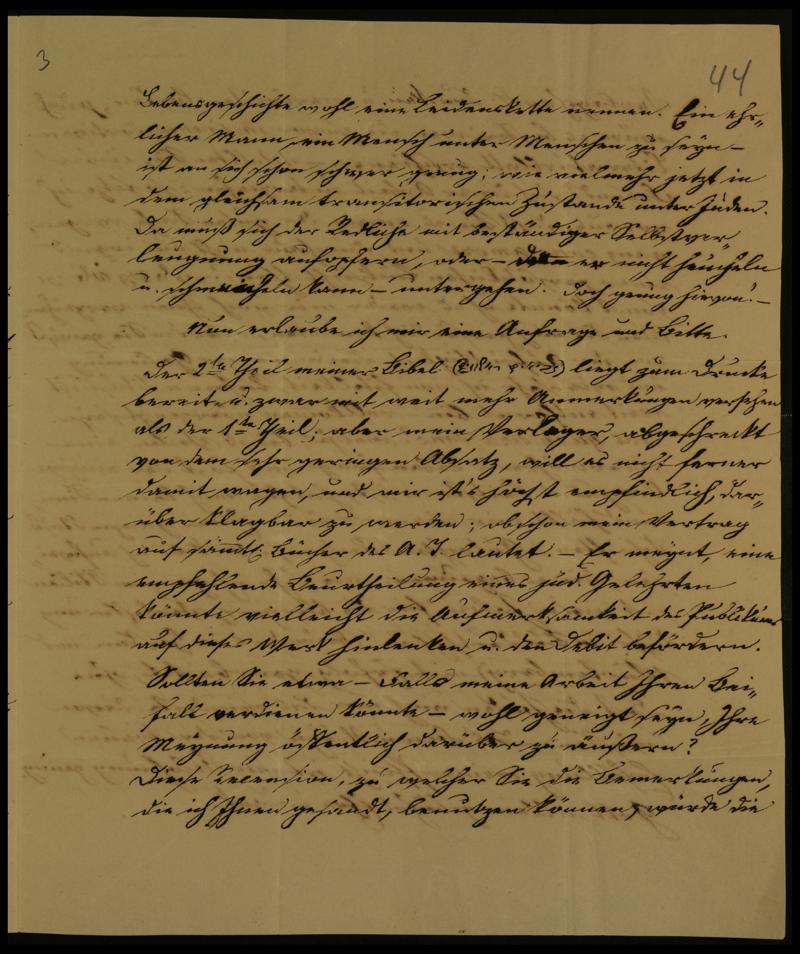 3
44
Lebensgeschichte wohl eine Leidenskette nennen. Ein ehr-
licher Mann, ein Mensch unter Menschen zu seyn –
ist an sich schon schwer genug; wie vielmehr jetzt in
dem gleichsam transitorischen Zustande unter Juden.
Da muß sich der Redliche mit beständiger Selbstver-
leugnung aufopfern, oder – er nicht heucheln
u. schmeicheln kann – untergehen. Doch genug hievon! –
Nun erlaube ich mir eine Anfrage und Bitte.
Der 2te Theil meiner Bibel liegt zum Drucke
bereit u. zwar mit weit mehr Anmerkungen versehen
als der 1te Theil; aber mein Verleger, abgeschreckt
von dem sehr geringen Absatz, will es nicht ferner
damit wagen, und mir ist's höchst empfindlich, dar-
über klagbar zu werden; obschon mein Vertrag
auf sämtl. Bücher des A. T. lautet. – Er meynt, eine
empfehlende Beurtheilung eines jüd. Gelehrten
könnte vielleicht die Aufmerksamkeit des Publikums
auf dieses Werk hinlenken u. den Debit befördern.
Sollten Sie etwa – Falls meine Arbeit Ihren Bei-
fall verdienen könnte – wohl geneigt seyn, Ihre
Meynung öffentlich darüber zu äußern?
Diese Recension, zu welcher Sie die Bemerkungen,
die ich Ihnen gesandt, benutzen können, würde die